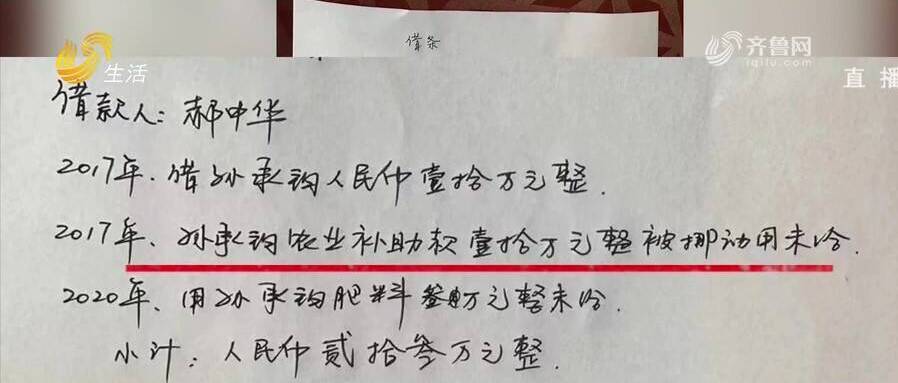 借条
生活
齐鲁网
iqilu.com
直播
借款人：郝中华
2017年．借孙承钧人民币壹拾万元整．
2017年、孙承钧农业补助款壹拾万元整被挪动用未给．
2020年、用孙承钧肥料叁万元整未给．
小计：人民币贰拾叁万元整．